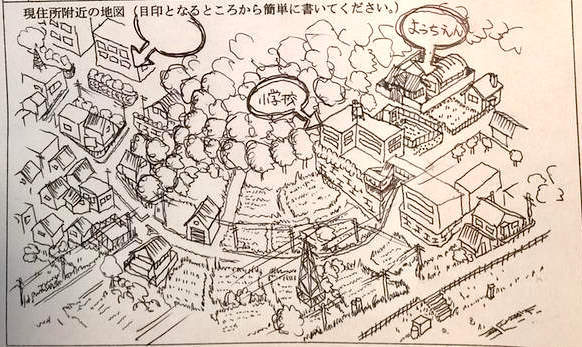 現住所附近の地図(目印となるところから簡単に書いてください。)
ようちえん
小学校